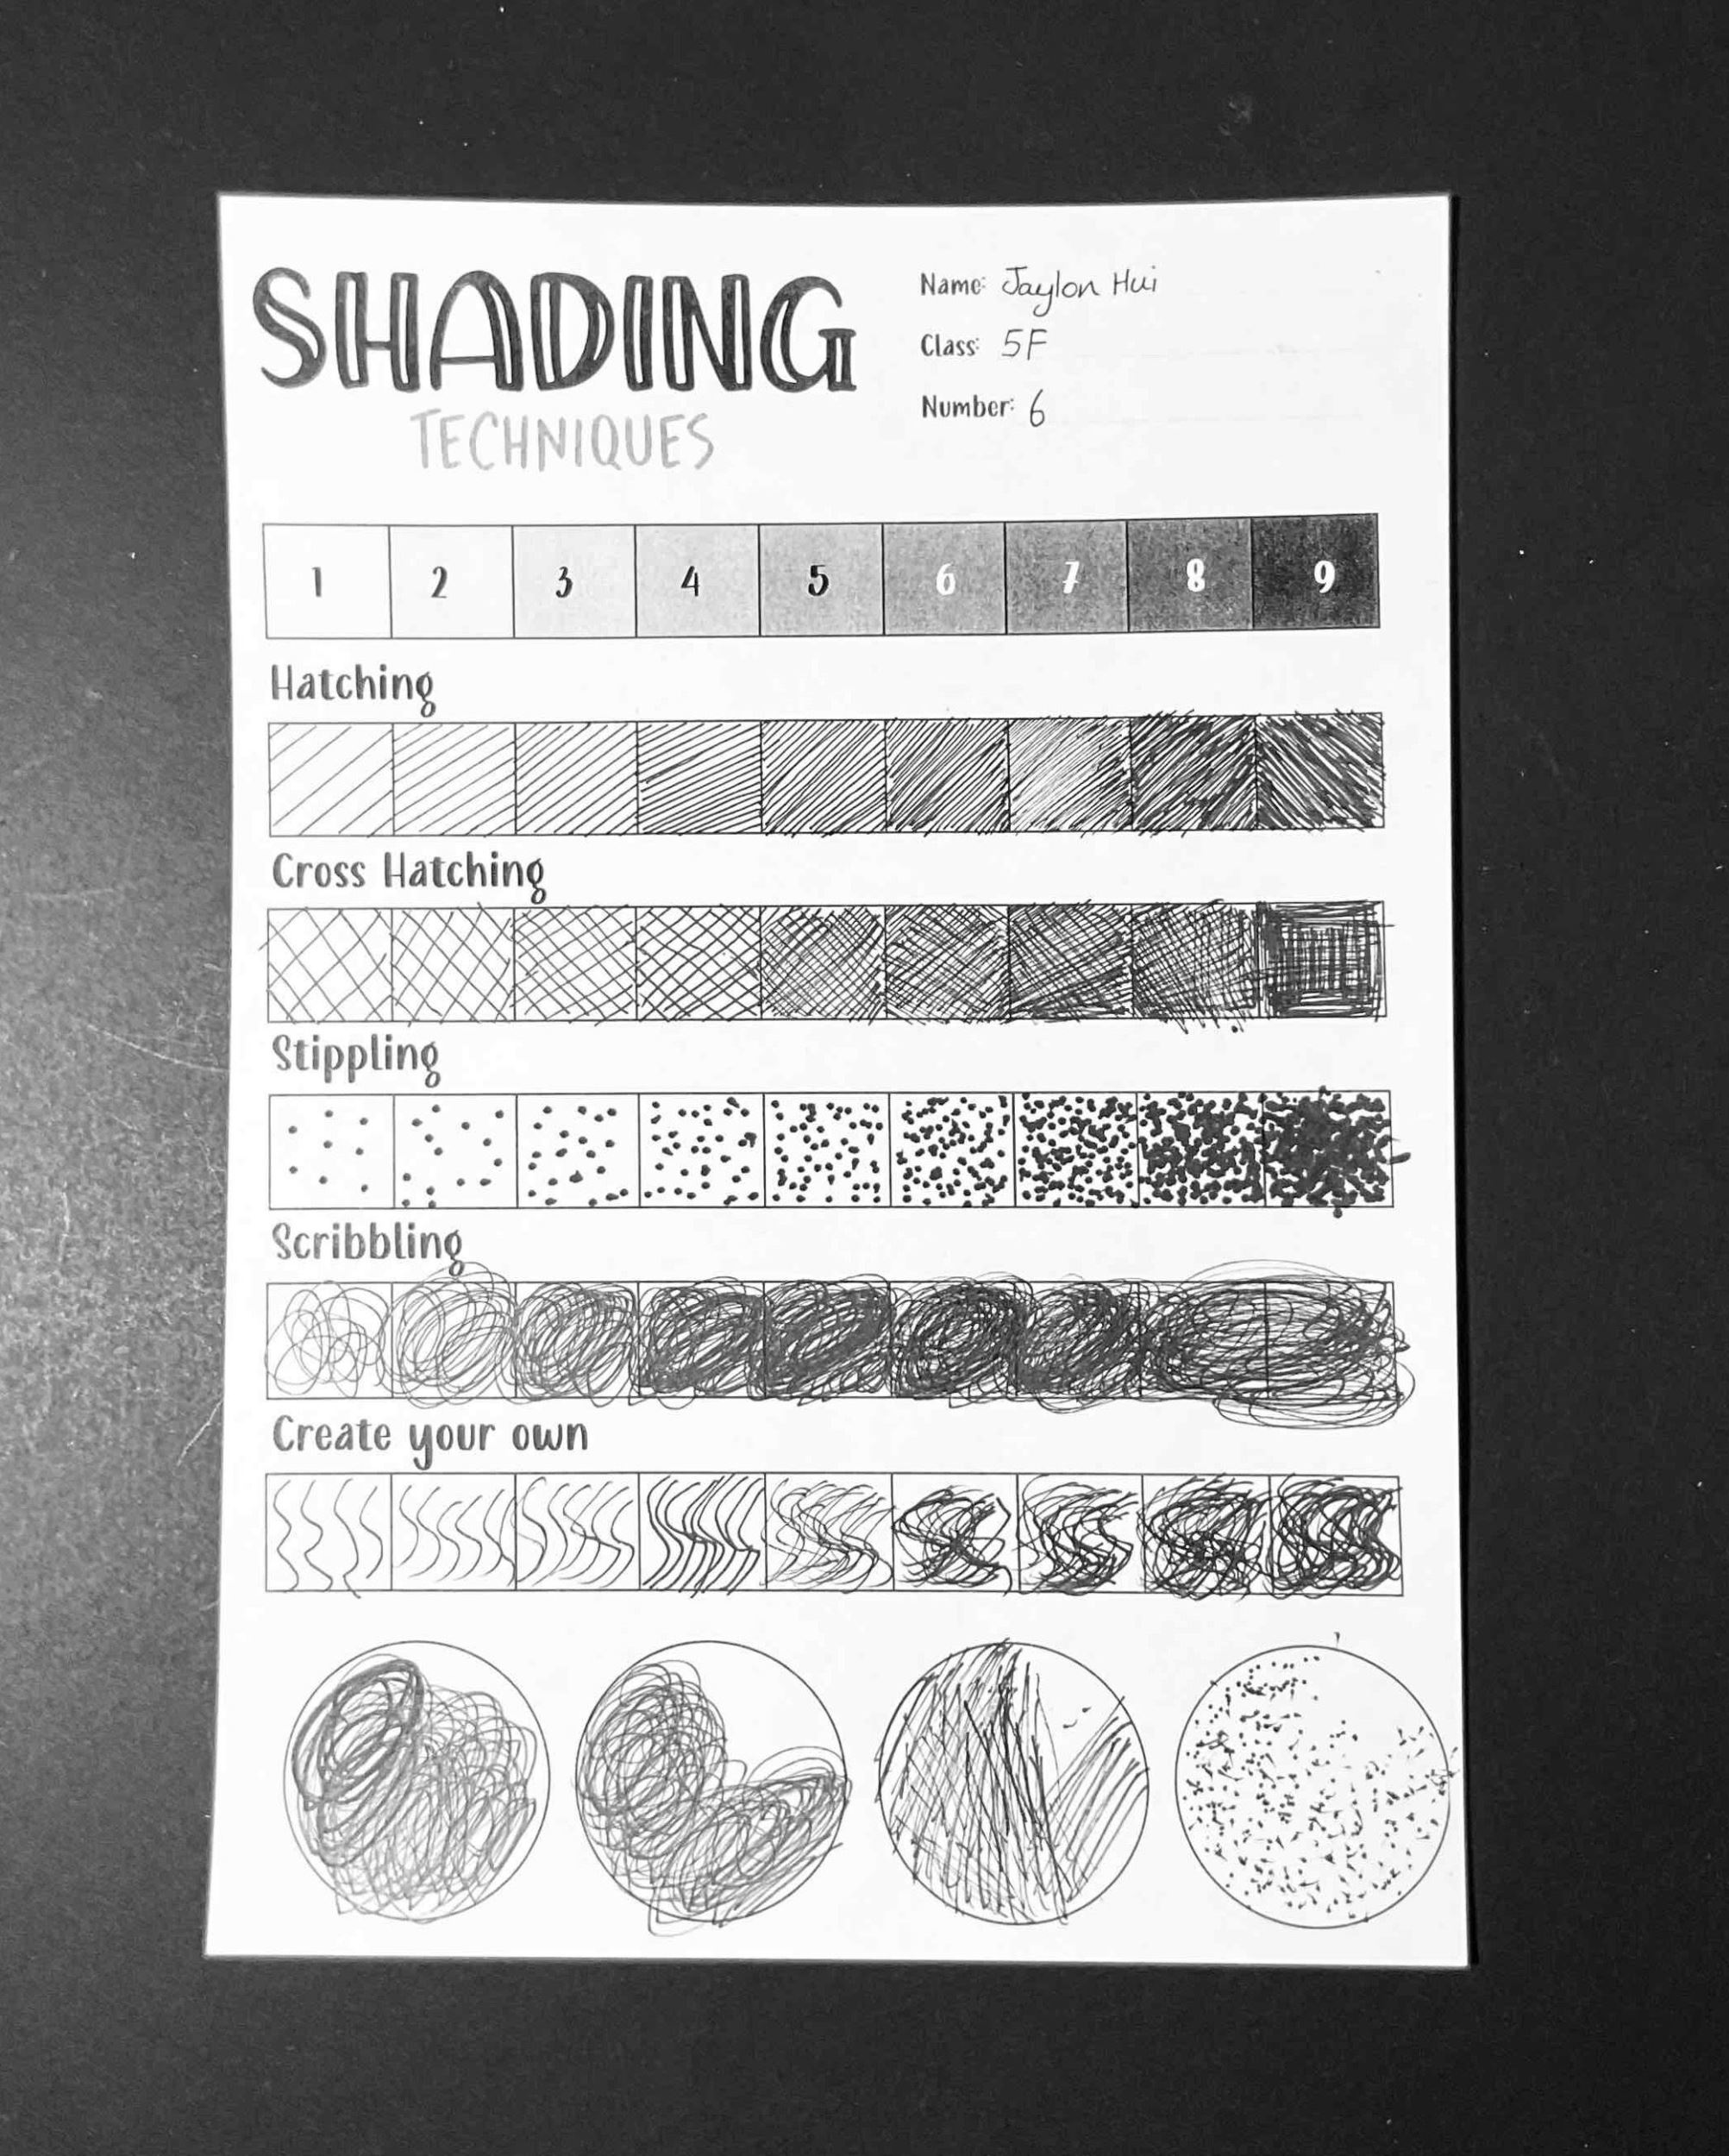 SHADING
TECHNIQUES
Name: Jaylon Hui
Class: 5F
Number: 6
1 2 3 4 5 6 7 8 9
Hatching
Cross Hatching
Stippling
Scribbling
Create your own